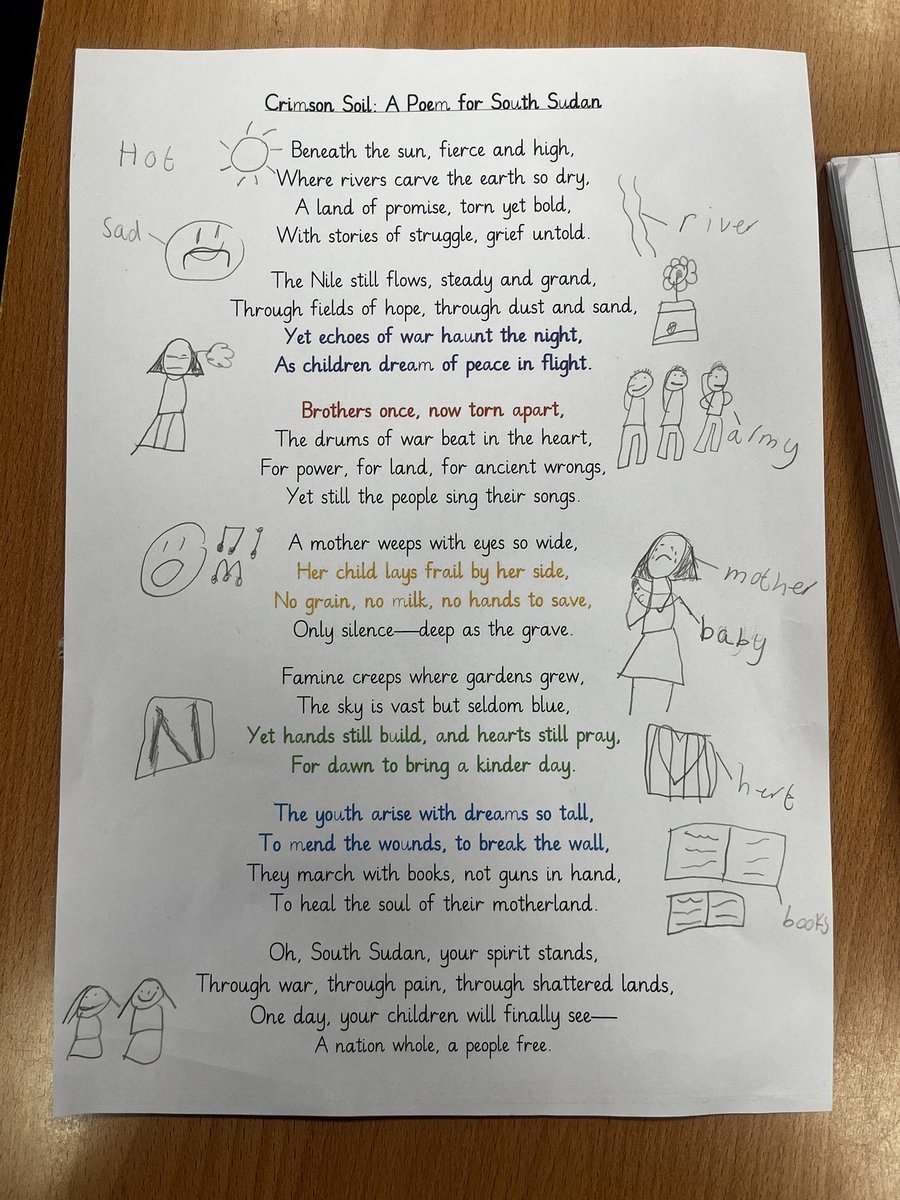 Crimson Soil: A Poem for South Sudan
Hot
Beneath the sun, fierce and high,
Where rivers carve the earth so dry,
A land of promise, torn yet bold,
With stories of struggle, grief untold.
Sad
river
The Nile still flows, steady and grand,
Through fields of hope, through dust and sand,
Yet echoes of war haunt the night,
As children dream of peace in flight.
Brothers once, now torn apart,
The drums of war beat in the heart,
For power, for land, for ancient wrongs,
Yet still the people sing their songs.
army
A mother weeps with eyes so wide,
Her child lays frail by her side,
No grain, no milk, no hands to save,
Only silence—deep as the grave.
mother
baby
Famine creeps where gardens grew,
The sky is vast but seldom blue,
Yet hands still build, and hearts still pray,
For dawn to bring a kinder day.
hert
The youth arise with dreams so tall,
To mend the wounds, to break the wall,
They march with books, not guns in hand,
To heal the soul of their motherland.
books
Oh, South Sudan, your spirit stands,
Through war, through pain, through shattered lands,
One day, your children will finally see—
A nation whole, a people free.